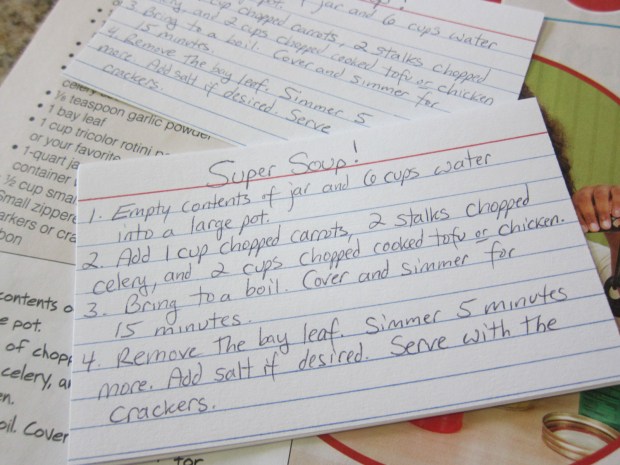 jar and 6 cups water
cup chopped carrots, 2 stalks chopped
and 2 cups chopped cooked tofu or chicken
3. Bring to a boil. Cover and simmer for
15 minutes.
4. Remove the bay leaf. Simmer 5
more. Add salt if desired. Serve
crackers.
celery
• ⅛ teaspoon garlic powder
• 1 bay leaf
• 1 cup tricolor rotini
or your favorite
• 1-quart ja
container
½ cup smal
Small zipper
arkers or cra
bon
contents o
e pot.
of chopp
celery, a
en.
oil. Cover
Super Soup!
1. Empty contents of jar and 6 cups water
into a large pot.
2. Add 1 cup chopped carrots, 2 stalks chopped
celery, and 2 cups chopped cooked tofu or chicken.
3. Bring to a boil. Cover and simmer for
15 minutes.
4. Remove the bay leaf. Simmer 5 minutes
more. Add salt if desired. Serve with the
crackers.